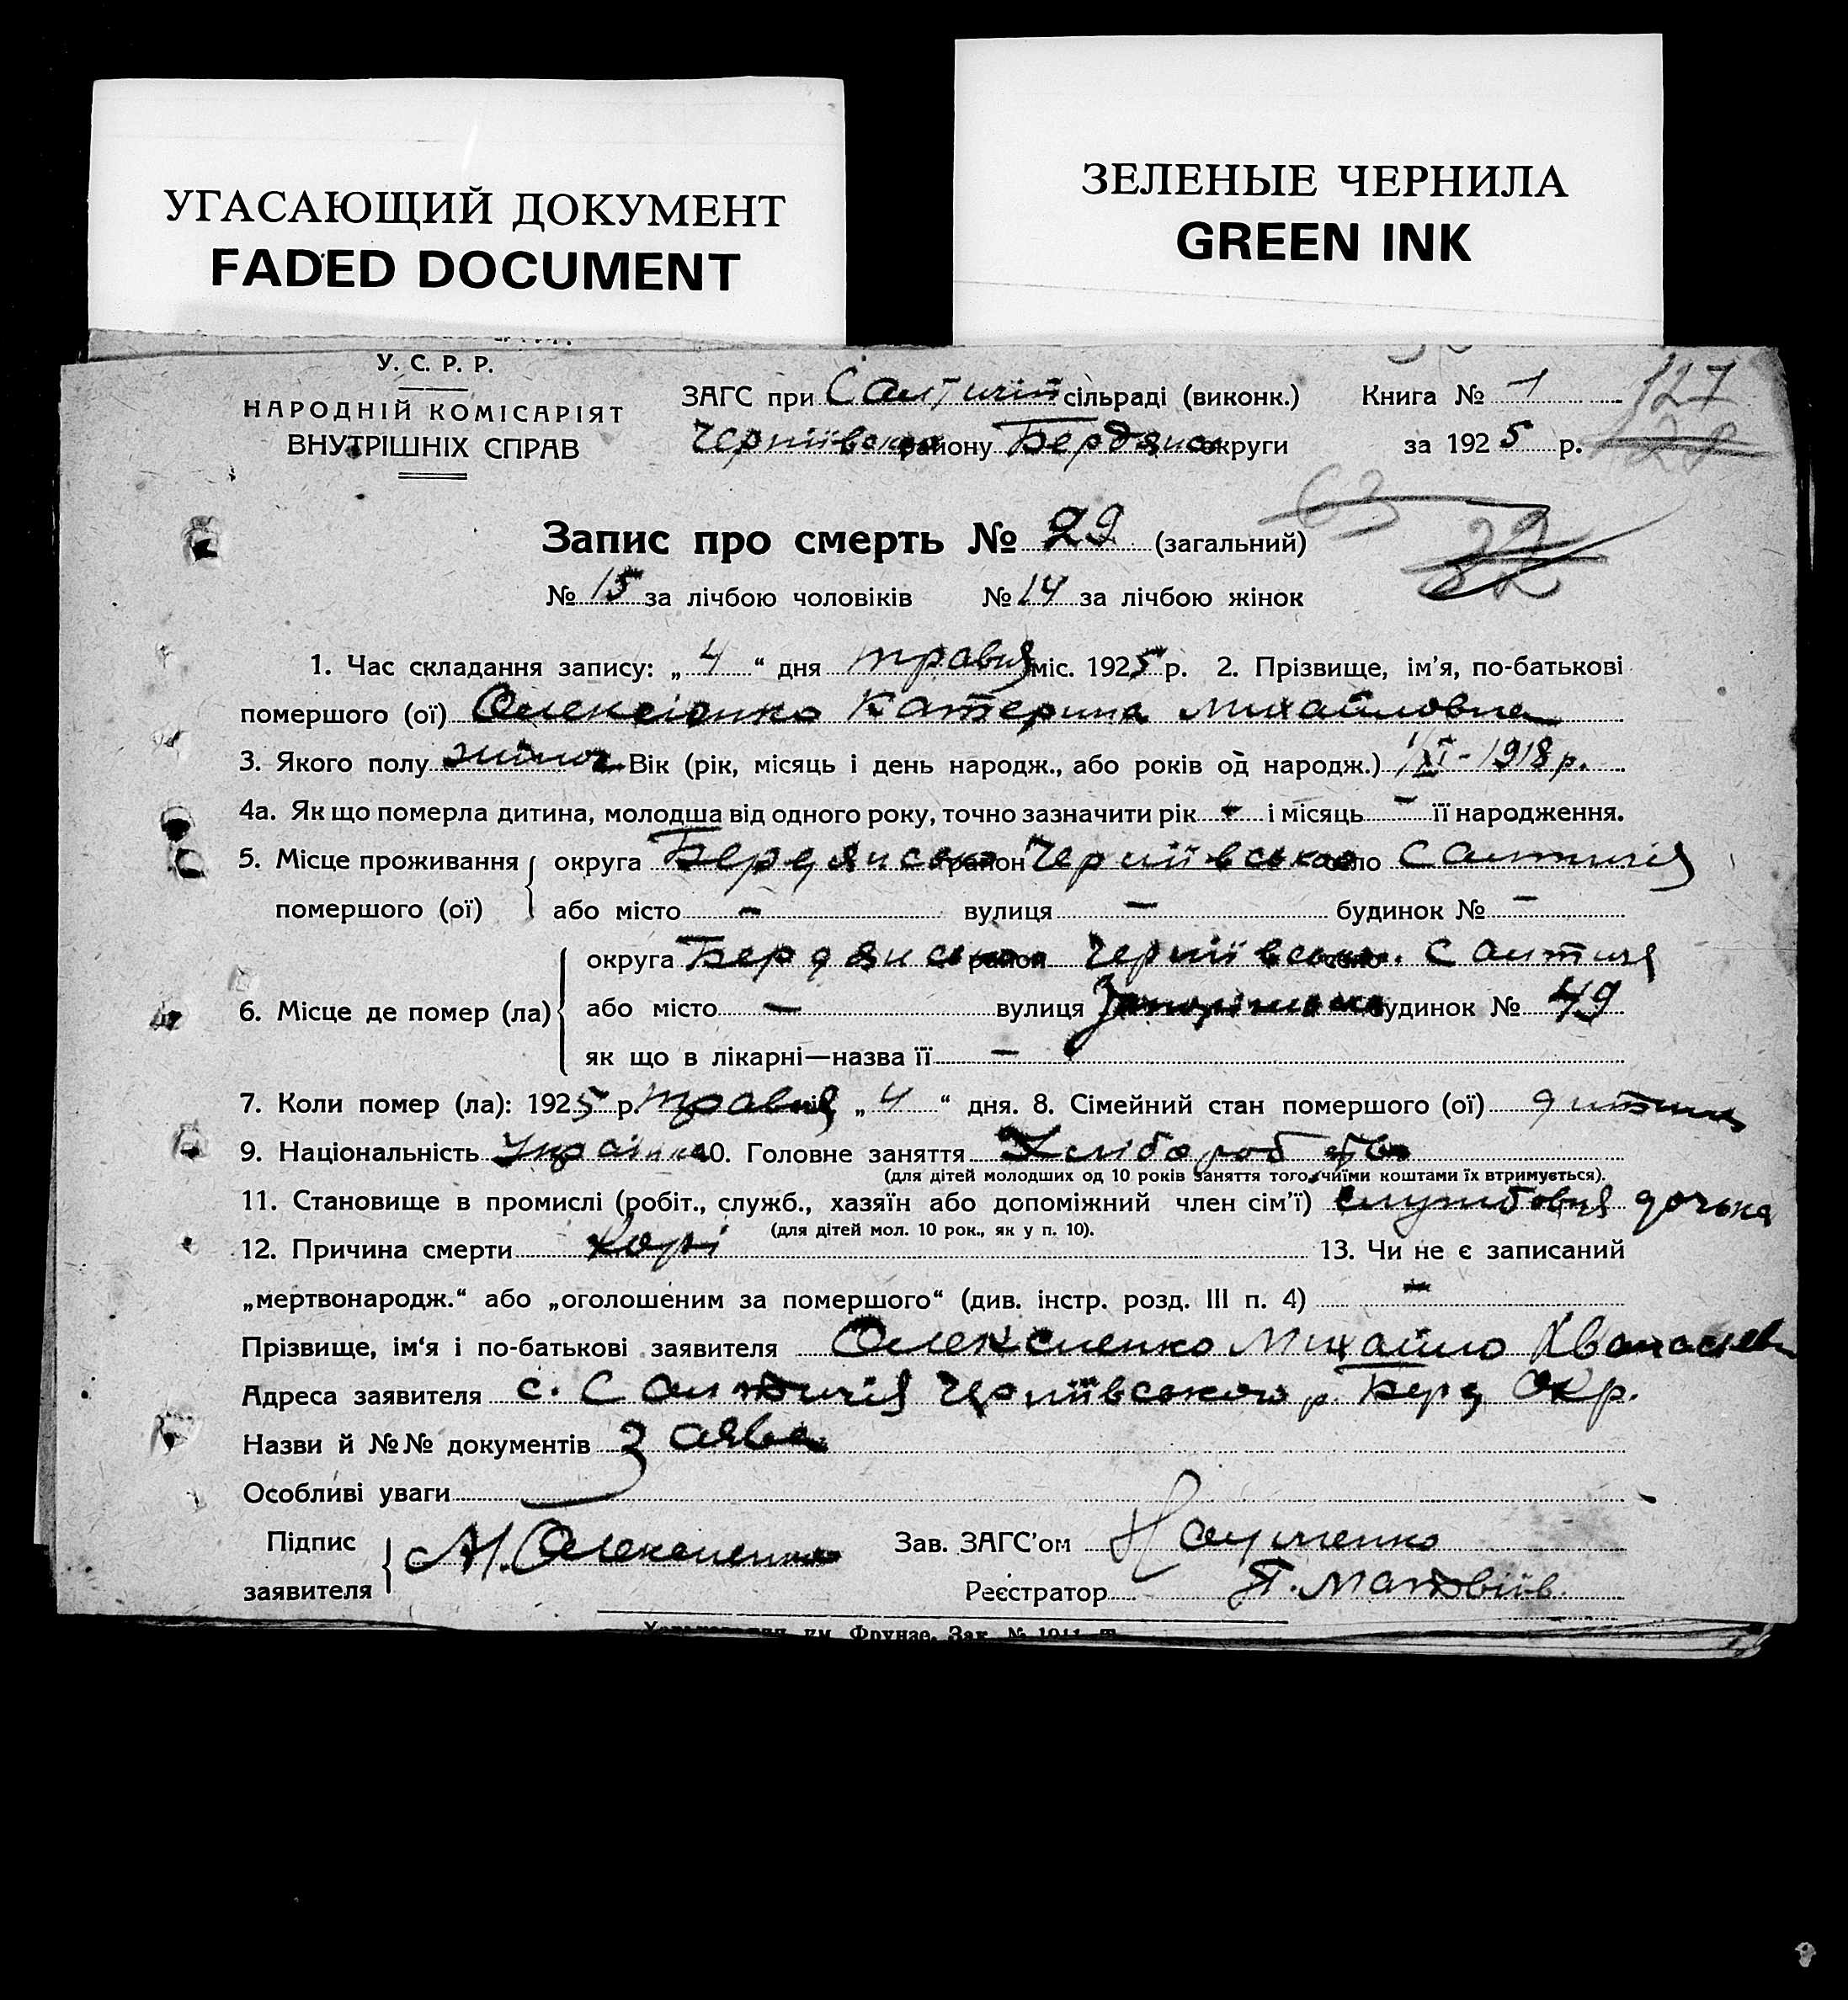 УГАСАЮЩИЙ ДОКУМЕНТ
FADED DOCUMENT
ЗЕЛЕНЫЕ ЧЕРНИЛА
GREEN INK
У. С. Р. Р.
НАРОДНІЙ КОМІСАРІЯТ
ВНУТРІШНІХ СПРАВ
ЗАГС при сільраді (виконк.) Книга № 1 127
району Бердянсь округи за 1925 р. 128
63
Запис про смерть № 29 (загальний)
№ 15 за лічбою чоловіків № 14 за лічбою жінок
1. Час складання запису: „ 4 “ дня травня міс. 1925 р. 2. Прізвище, ім'я, по-батькові
помершого (ої) Олексієнко Катерина Михайловна
3. Якого полу жіноч Вік (рік, місяць і день народж., або років од народж.) 1/XI-1918 р.
4а. Як що померла дитина, молодша від одного року, точно зазначити рік - і місяць - її народження.
5. Місце проживання округа Бердянська район Черніївсько село Салтичія
помершого (ої) або місто - вулиця - будинок № -
6. Місце де помер (ла) округа Бердянська район Черніївськ. село Салтичя
або місто - вулиця будинок № 49
як що в лікарні—назва її -
7. Коли помер (ла): 1925 р. травня „ 4 “ дня. 8. Сімейний стан помершого (ої) дитина
9. Національність Україн 10. Головне заняття Хліборобство
(для дітей молодших од 10 років заняття того, чиїми коштами їх втримується).
11. Становище в промислі (робіт., служб., хазяїн або допоміжний член сім'ї) дочька
(для дітей мол. 10 рок., як у п. 10).
12. Причина смерти Корі 13. Чи не є записаний
„мертвонародж.“ або „оголошеним за помершого“ (див. інстр. розд. III п. 4) -
Прізвище, ім'я і по-батькові заявителя Олексієнко Михайло
Адреса заявителя с. Салтичія Черніївського р. Берд Окр.
Назви й №№ документів Заява
Особливі уваги
Підпис заявителя М. Олексієнко Зав. ЗАГС'ом Науменко
Реєстратор П. Матвіїв
им. Фрунзе. Зак. №